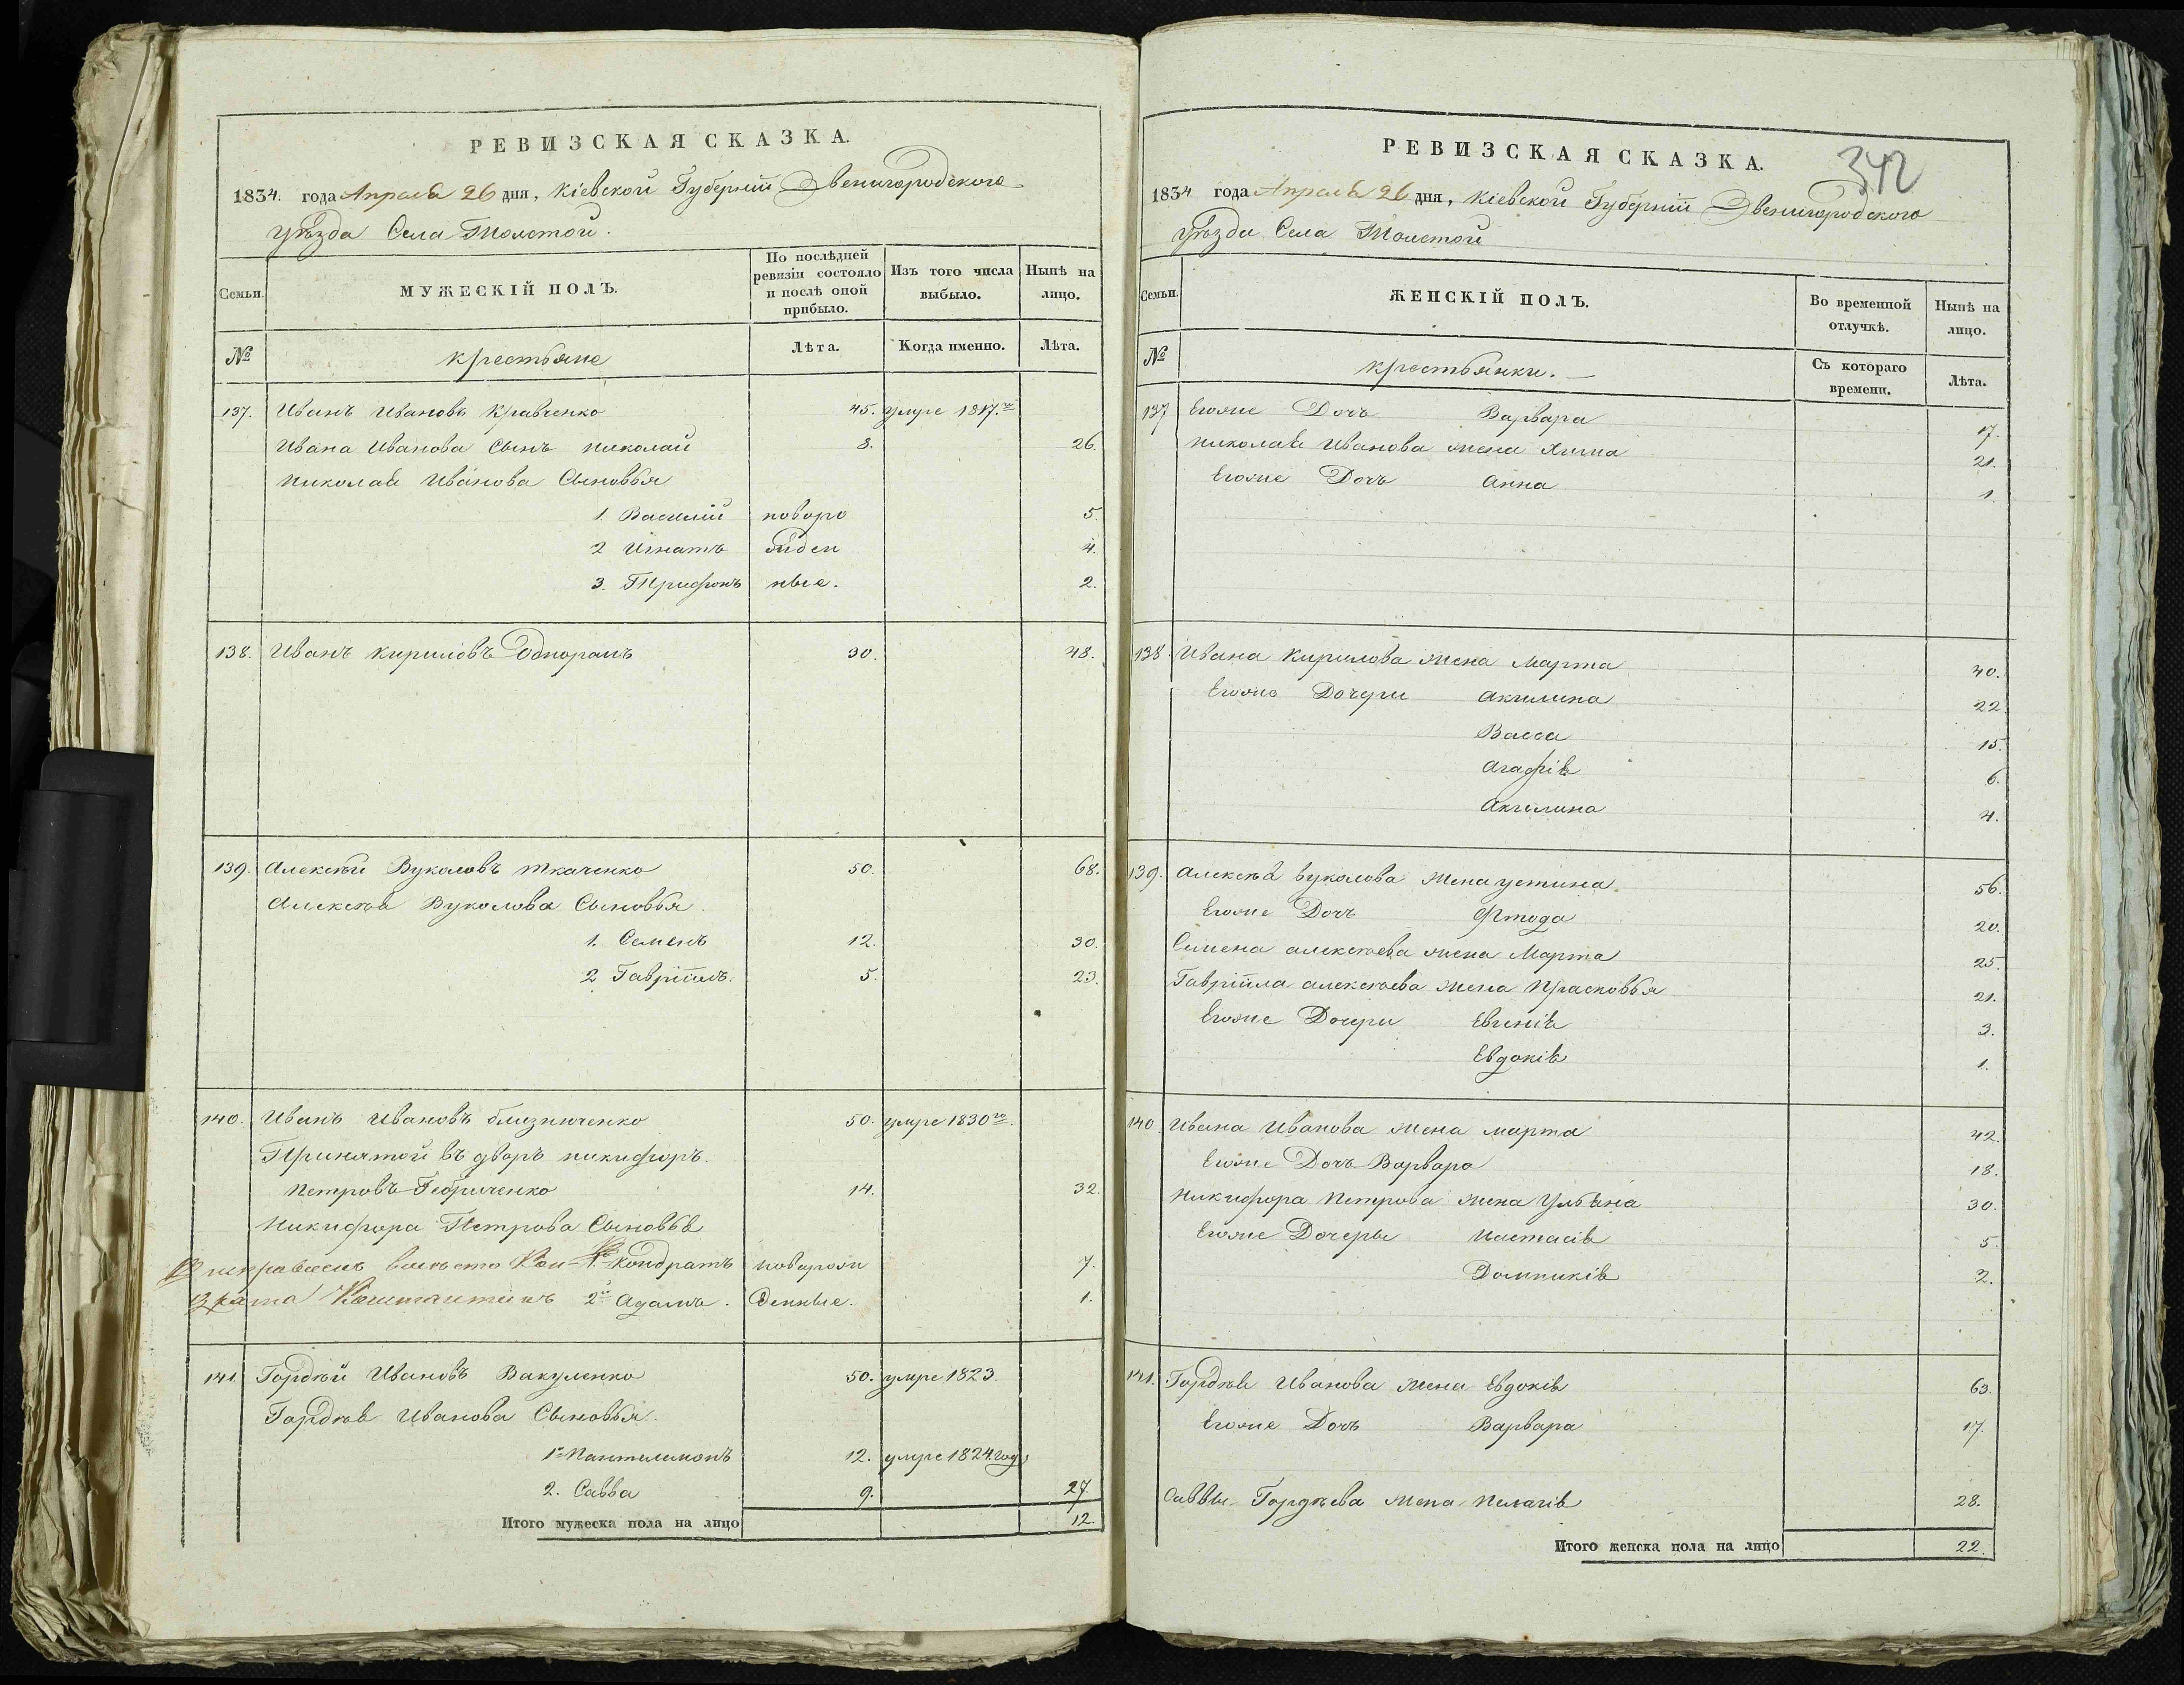 РЕВИЗСКАЯ СКАЗКА.
1834. года Апреля 26 дня, Кіевской Губерніи Звенигородского
уѣзда Села Толстой.
Семьи.
МУЖЕСКІЙ ПОЛЪ.
По послѣдней ревизіи состояло и послѣ оной прибыло.
Изъ того числа выбыло.
Нынѣ на лицо.
№
крестьяне
Лѣта.
Когда именно.
Лѣта.
137. Иванъ Ивановъ Кравченко 45. умре 1817.го
Ивана Иванова Сынъ Николай 8. 26.
Николая Иванова Сыновья
1. Василій новоро 5.
2 Игнатъ жден 4.
3. Трифонъ ные. 2.
138. Иванъ Кириловъ 30. 48.
139. Алексѣй Вуколовъ Ткаченко 50. 68.
Алексѣя Вуколова Сыновья.
1. Семенъ 12. 30.
2 Гавріилъ. 5. 23.
140. Иванъ Ивановъ близниченко 50. умре 1830го.
Принятой въ дворъ никифоръ.
Петровъ 14. 32.
Никифора Петрова Сыновья
1й Кондратъ новорож 7.
вместо Кон
драта Константинъ 2й Адамъ. денные. 1.
141. Гордѣй Ивановъ Вакуленко 50. умре 1823.
Гордѣя Иванова Сыновья.
1й Пантелимонъ 12. умре 1824. году
2. Савва 9. 27
Итого мужеска пола на лицо 12.
342
РЕВИЗСКАЯ СКАЗКА.
1834 года Апреля 26 дня, Кіевской Губерніи Звенигородского
уѣзда Села Толстой
Семьи.
ЖЕНСКІЙ ПОЛЪ.
Во временной отлучкѣ.
Нынѣ на лицо.
№
крестьянки.
Съ котораго времени.
Лѣта.
137 Егоже Дочь Варвара 17.
Николая Иванова жена 21.
Егоже Дочь Анна 1.
138. Ивана Кирилова жена Марта 40.
Егоже Дочери Акилина 22
Васса 15.
Агафія 6.
Акилина 4.
139. Алексѣя Вуколова жена устина. 56.
Егоже Дочь 20.
Семена алексѣева жена Марта 25.
Гавріила алексѣева жена Прасковья 21.
Егоже Дочери Евгенія 3.
Евдокія 1.
140. Ивана Иванова жена марта 42.
Егоже Дочь Варвара 18.
Никифора Петрова жена Ульяна 30.
Егоже Дочеры Настасія 5.
Домникія 2.
141. Гордѣя Иванова жена Евдокія 63.
Егоже Дочь Варвара 17.
Саввы Гордѣева жена Пелагія 28.
Итого женска пола на лицо 22.